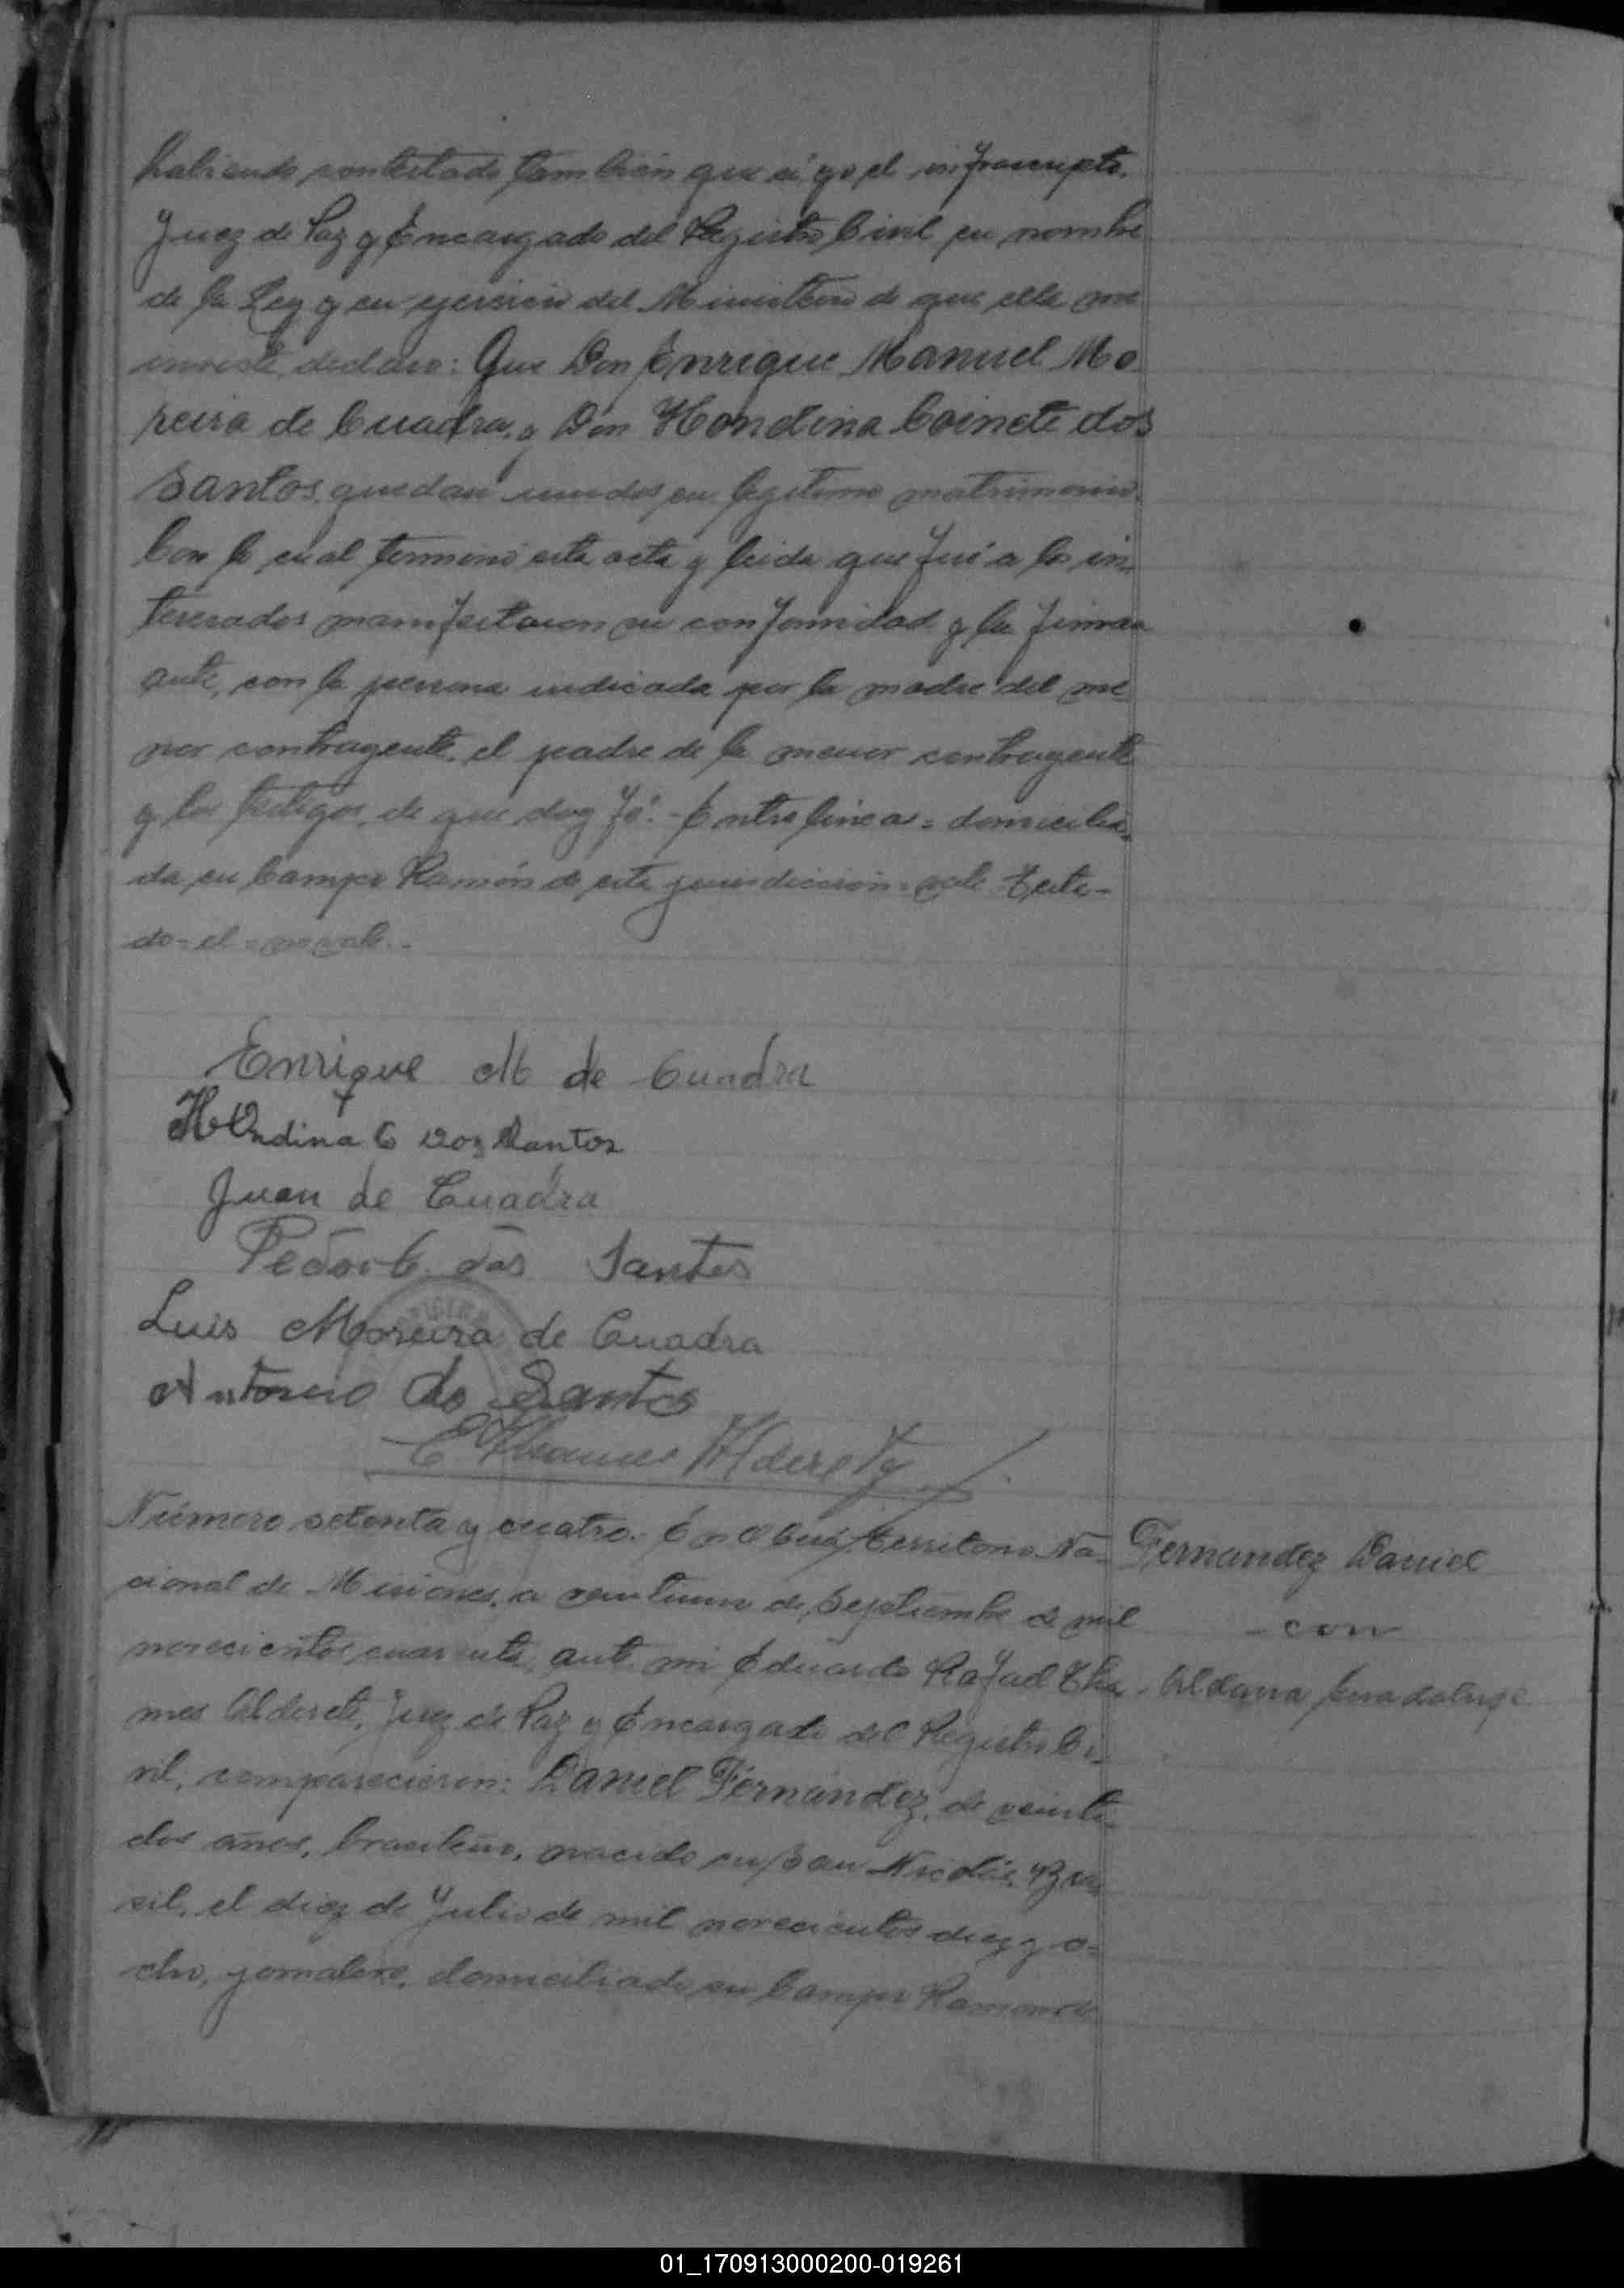 habiendo contestado tambien que sí yo el infrascripto.
Juez de Paz y Encargado del Registro Civil en nombre
de la Ley y en ejercicio del Ministerio de que ella me
inviste, declaro: Que Don Enrique Manuel Mo
reira de Cuadra, y Don Hondina Coinete dos
Santos, quedan unidos en legitimo matrimonio.
Con lo cual terminó esta acta y leida que fué a los in
teresados manifestaron su conformidad y la firman
ante, con la persona indicada por la madre del me
nor contrayente, el padre de la menor contrayente
y los testigos, de que doy fé.- Entre lineas = domicilia
da en Campo Ramón de esta jurisdicción = vale Testa-
do = el = no vale.-
Enrique M de Cuadra
Hondina C Dos Santos
Juan de Cuadra
dos Santos
Luis Moreira de Cuadra
Antonio do Santos
Número setenta y cuatro.- En Oberá, Territorio Na-
cional de Misiones, a veintiuno de Septiembre de mil
novecientos cuarenta, ante mi Eduardo Rafael Tha
mes Alderete, Juez de Paz y Encargado del Registro Ci-
vil, comparecieron: Daniel Fernández, de veinti-
dos años, brasileño, nacido en San Nicolás, Bra
sil, el diez de Julio de mil novecientos diez y o-
cho, jornalero, domiciliado en Campo Ramon de
Fernandez Daniel
- con
Aldana Guadalupe
01_170913000200-019261